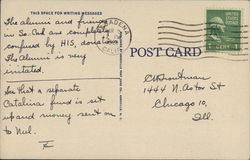 THIS SPACE FOR WRITING MESSAGES
The alumni and friends
in So. Cal are completely
confused by HIS, donations
The Alumni is very
irritated.
See that a separate
Catalina fund is set
up and money sent on
to Nul.
PASADENA
CALIF
POST CARD
1444 N. Astor St
Chicago 10,
Ill.